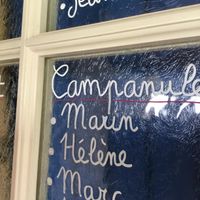 Campanule
• Marin
• Hélène
• Marc